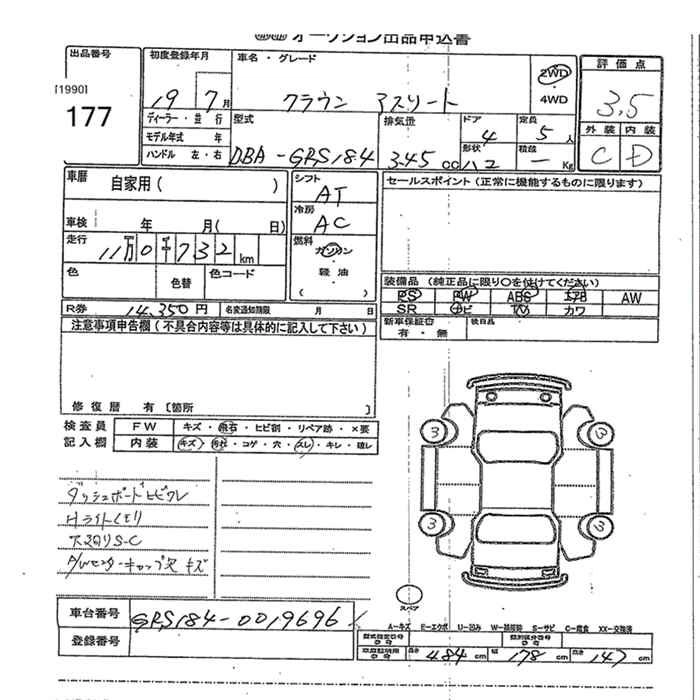 オークション出品申込書
出品番号
[1990]
177
初度登録年月
19 7月
車名・グレード
クラウン アスリート
2WD
4WD
評価点
3.5
外装 内装
C D
ディーラー・並行
モデル年式 年
ハンドル 左・右
型式
DBA-GRS184
排気量
3.45 cc
ドア
4
形状
ハコ
定員
5人
積載
ー Kg
車歴
自家用( )
車検 年 月( 日)
走行
11万0千732km
色
色替
色コード
シフト
AT
冷房
AC
燃料
ガソリン
・
軽油
( )
セールスポイント(正常に機能するものに限ります)
装備品(純正品に限り〇を付けてください)
PS PW ABS エアB AW
SR ナビ TV カワ
新車保証書
有・無
後日品
R券 14,350円
名変通知期限 月 日
注意事項申告欄(不具合内容等は具体的に記入して下さい)
修復歴 有〔箇所 〕
検査員
記入欄
FW キズ・飛石・ヒビ割・リペア跡・×要
内装 キズ・汚れ・コゲ・穴・スレ・キレ・破レ
ダッシュボードヒビワレ
Hライトくもり
下回りS-C
A/Wセンターキャップ欠 キズ
3
3
3
3
スペア
車台番号 GRS184-0019696
登録番号
A-キズ E-エクボ U-凹み W-補修跡 S-サビ C-腐食 XX-交換済
型式指定番号
類別区分番号
車庫証明用
長さ 484cm 幅 178cm 高さ 147cm